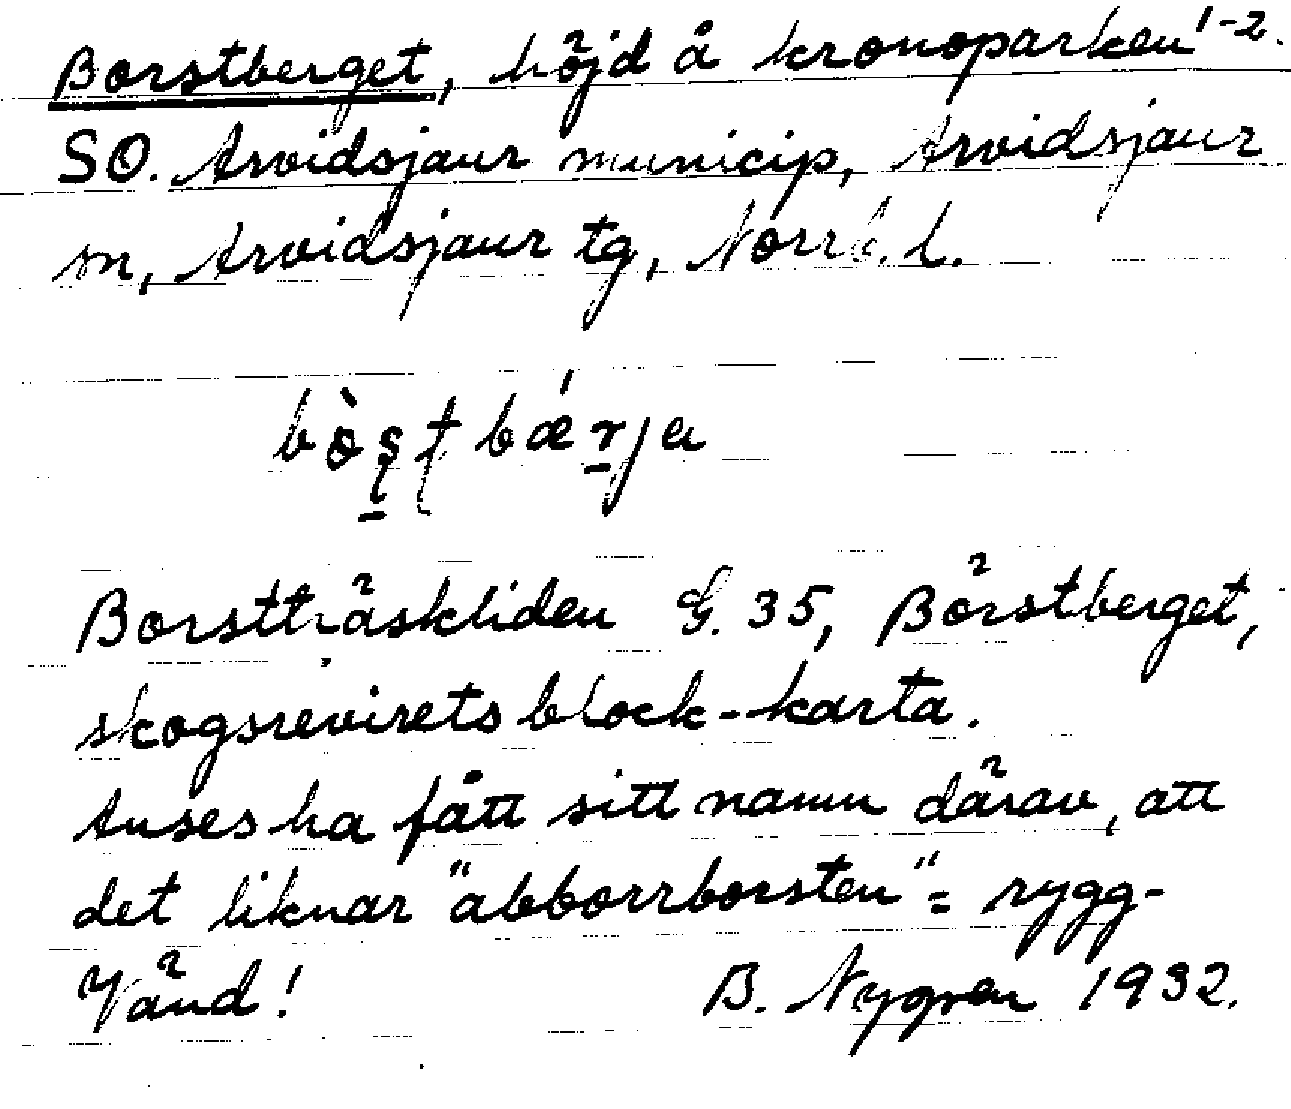 Borstberget, höjd å kronoparken 1-2.
SO. Arvidsjaur municip, Arvidsjaur
sn, Arvidsjaur tg, Norrb. l.
Borstträskliden G. 35, Börstberget,
skogsrevirets block-karta.
Anses ha fått sitt namn därav, att
det liknar "abborrborsten" = rygg-
Vänd! B. Nygren 1932.